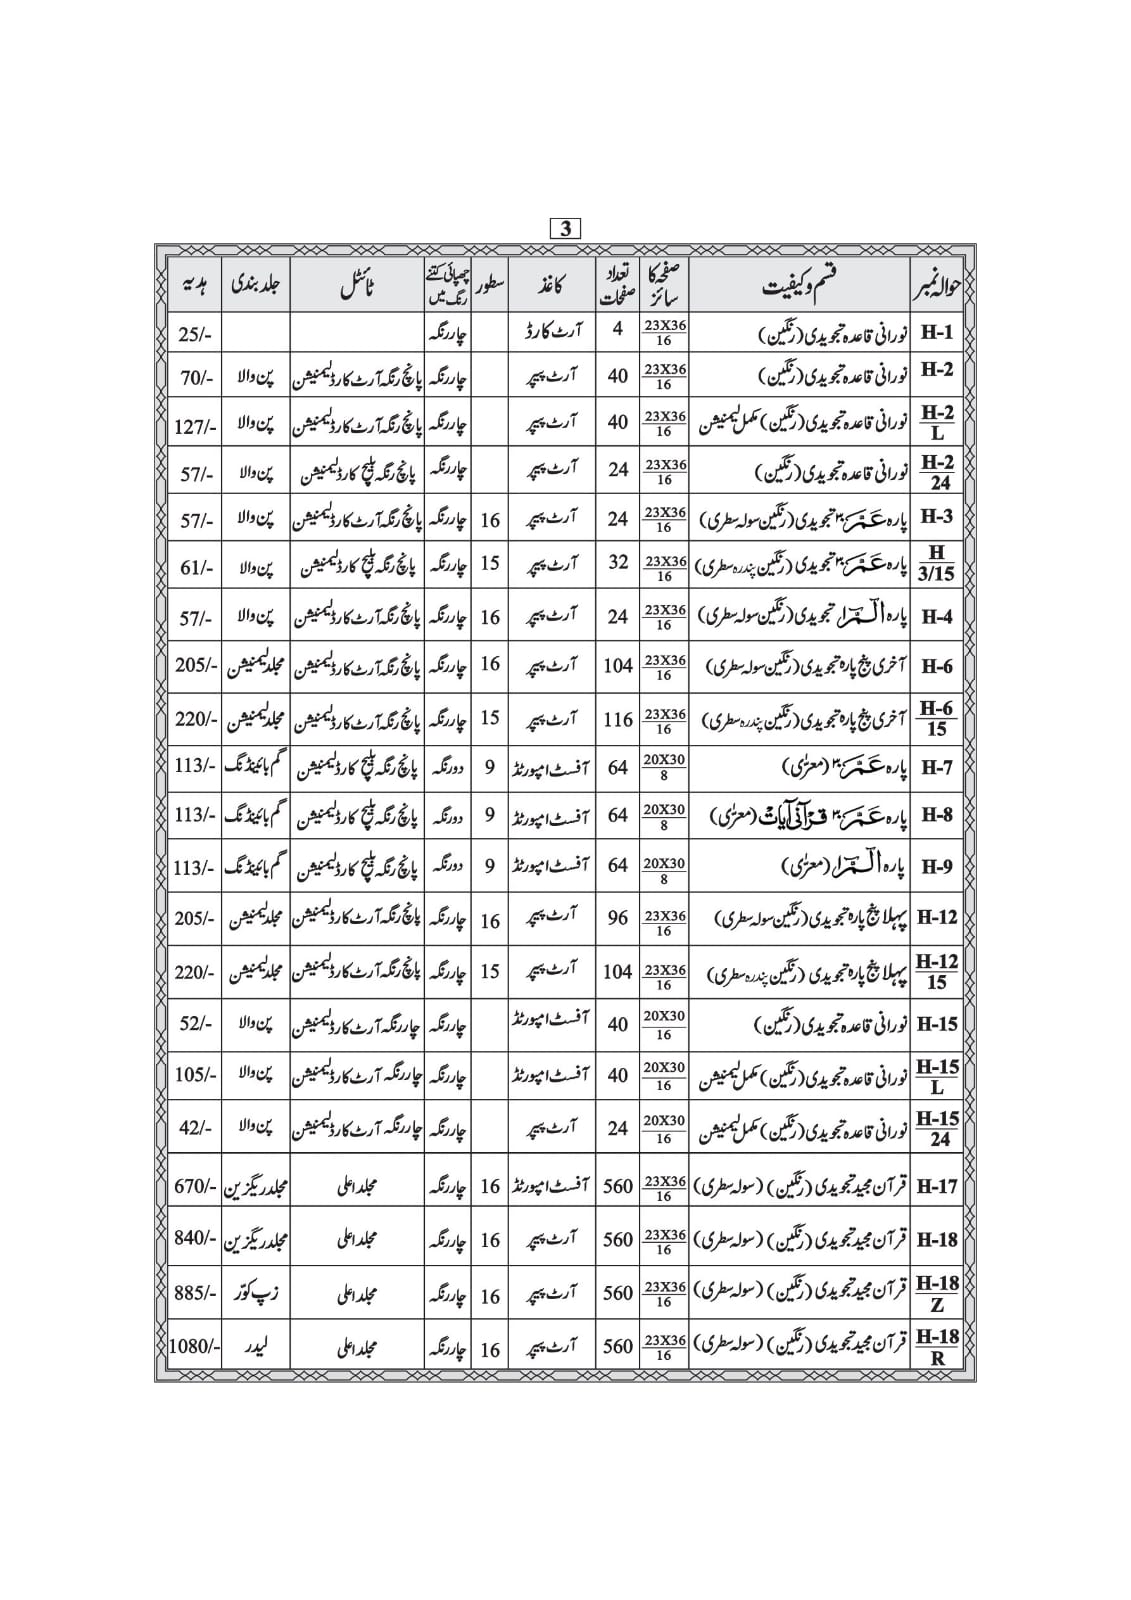 3
حوالہ نمبر قسم و کیفیت صفحہ کا سائز تعداد صفحات کاغذ سطور چھپائی کتنے رنگ میں ٹائٹل جلد بندی ہدیہ
H-1 نورانی قاعدہ تجویدی (رنگین) 23X36/16 4 آرٹ کارڈ چار رنگہ 25/-
H-2 نورانی قاعدہ تجویدی (رنگین) 23X36/16 40 آرٹ پیپر چار رنگہ پانچ رنگہ آرٹ کارڈ لیمنیشن پن والا 70/-
H-2/L نورانی قاعدہ تجویدی (رنگین) مکمل لیمنیشن 23X36/16 40 آرٹ پیپر چار رنگہ پانچ رنگہ آرٹ کارڈ لیمنیشن پن والا 127/-
H-2/24 نورانی قاعدہ تجویدی (رنگین) 23X36/16 24 آرٹ پیپر چار رنگہ پانچ رنگہ بلیچ کارڈ لیمنیشن پن والا 57/-
H-3 پارہ عَمَّ ۳۰ تجویدی (رنگین سولہ سطری) 23X36/16 24 آرٹ پیپر 16 چار رنگہ پانچ رنگہ آرٹ کارڈ لیمنیشن پن والا 57/-
H/3/15 پارہ عَمَّ ۳۰ تجویدی (رنگین پندرہ سطری) 23X36/16 32 آرٹ پیپر 15 چار رنگہ پانچ رنگہ بلیچ کارڈ لیمنیشن پن والا 61/-
H-4 پارہ الٓمّٓ ۱ تجویدی (رنگین سولہ سطری) 23X36/16 24 آرٹ پیپر 16 چار رنگہ پانچ رنگہ آرٹ کارڈ لیمنیشن پن والا 57/-
H-6 آخری پنج پارہ تجویدی (رنگین سولہ سطری) 23X36/16 104 آرٹ پیپر 16 چار رنگہ پانچ رنگہ آرٹ کارڈ لیمنیشن مجلد لیمنیشن 205/-
H-6/15 آخری پنج پارہ تجویدی (رنگین پندرہ سطری) 23X36/16 116 آرٹ پیپر 15 چار رنگہ پانچ رنگہ آرٹ کارڈ لیمنیشن مجلد لیمنیشن 220/-
H-7 پارہ عَمَّ ۳۰ (معریٰ) 20X30/8 64 آفسٹ امپورٹڈ 9 دو رنگہ پانچ رنگہ بلیچ کارڈ لیمنیشن گم بائینڈنگ 113/-
H-8 پارہ عَمَّ ۳۰ قرآنی آیات (معریٰ) 20X30/8 64 آفسٹ امپورٹڈ 9 دو رنگہ پانچ رنگہ بلیچ کارڈ لیمنیشن گم بائینڈنگ 113/-
H-9 پارہ الٓمّٓ ۱ (معریٰ) 20X30/8 64 آفسٹ امپورٹڈ 9 دو رنگہ پانچ رنگہ بلیچ کارڈ لیمنیشن گم بائینڈنگ 113/-
H-12 پہلا پنج پارہ تجویدی (رنگین سولہ سطری) 23X36/16 96 آرٹ پیپر 16 چار رنگہ پانچ رنگہ آرٹ کارڈ لیمنیشن مجلد لیمنیشن 205/-
H-12/15 پہلا پنج پارہ تجویدی (رنگین پندرہ سطری) 23X36/16 104 آرٹ پیپر 15 چار رنگہ پانچ رنگہ آرٹ کارڈ لیمنیشن مجلد لیمنیشن 220/-
H-15 نورانی قاعدہ تجویدی (رنگین) 20X30/16 40 آفسٹ امپورٹڈ چار رنگہ چار رنگہ آرٹ کارڈ لیمنیشن پن والا 52/-
H-15/L نورانی قاعدہ تجویدی (رنگین) مکمل لیمنیشن 20X30/16 40 آفسٹ امپورٹڈ چار رنگہ چار رنگہ آرٹ کارڈ لیمنیشن پن والا 105/-
H-15/24 نورانی قاعدہ تجویدی (رنگین) مکمل لیمنیشن 20X30/16 24 آرٹ پیپر چار رنگہ چار رنگہ آرٹ کارڈ لیمنیشن پن والا 42/-
H-17 قرآن مجید تجویدی (رنگین) (سولہ سطری) 23X36/16 560 آفسٹ امپورٹڈ 16 چار رنگہ مجلد اعلیٰ مجلد ریگزین 670/-
H-18 قرآن مجید تجویدی (رنگین) (سولہ سطری) 23X36/16 560 آرٹ پیپر 16 چار رنگہ مجلد اعلیٰ مجلد ریگزین 840/-
H-18/Z قرآن مجید تجویدی (رنگین) (سولہ سطری) 23X36/16 560 آرٹ پیپر 16 چار رنگہ مجلد اعلیٰ زپ کوّر 885/-
H-18/R قرآن مجید تجویدی (رنگین) (سولہ سطری) 23X36/16 560 آرٹ پیپر 16 چار رنگہ مجلد اعلیٰ لیدر 1080/-